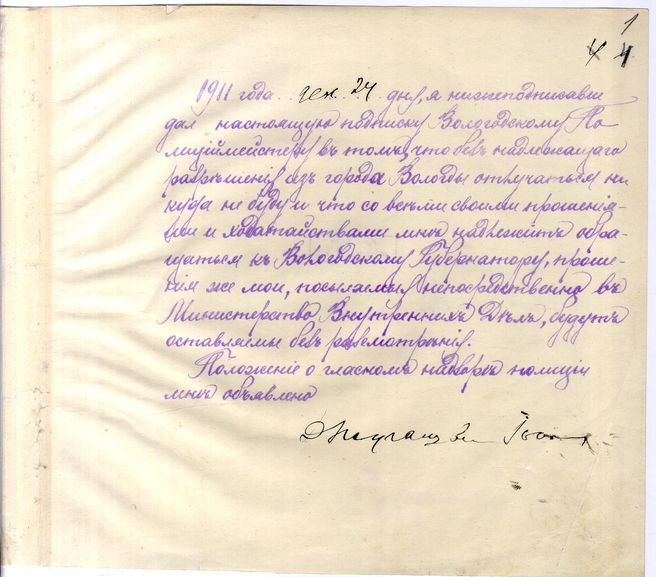 1
4 4
1911 года дек. 24 дня, я нижеподписавш
дал настоящую подписку Вологодскому По
лиціймейстеру въ томъ, что безъ надлежащаго
разрѣшенія изъ города Вологды отлучаться ни
куда не буду и что со всѣми своими прошенія-
ми и ходатайствами мнѣ надлежитъ обра-
щаться къ Вологодскому Губернатору, проше-
нія же мои, посылаемыя непосредственно въ
Министерство Внутреннихъ Дѣлъ, будутъ
оставляемы безъ разсмотрѣнія.
Положеніе о гласномъ надзорѣ полиціи
мнѣ объявлено